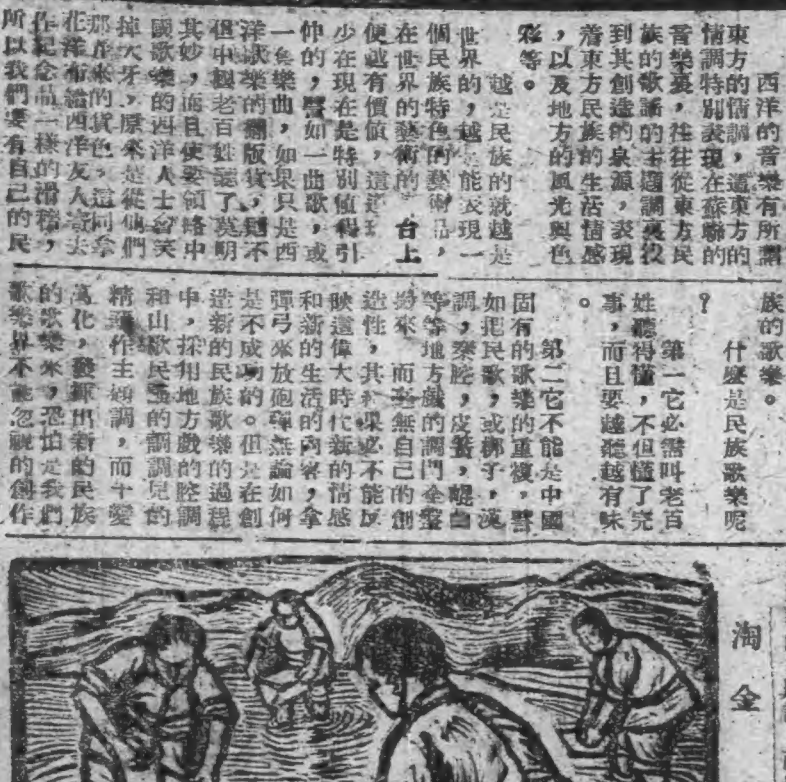 西洋的音樂有所謂
東方的情調，這東方的
情調特別表現在蘇聯的
音樂裏，往往從東方民
族的歌謠的主題調裏汲
到其創造的泉源，表現
着東方民族的生活情感
，以及地方的風光與色
彩等。
越是民族的就越是
世界的，越是能表現一
個民族特色的藝術品，
在世界的藝術的 台上
便越有價值，這
少在現在是特別值得引
伸的，譬如一曲歌，或
一隻樂曲，如果只是西
洋歌樂的翻版貨，則不
但中國老百姓聽了莫明
其妙，而且使要領略中
國歌樂的西洋人士會笑
掉大牙，原來是從他們
那兒來的貨色，這同拿
花洋布給西洋友人寄去
作紀念品一樣的滑稽，
所以我們要有自己的民
族的歌樂。
什麼是民族歌樂呢
？
第一它必需叫老百
姓聽得懂，不但懂了完
事，而且要越聽越有味
。
第二它不能是中國
固有的歌樂的重複，譬
如把民歌，或梆子，漢
調，秦腔，皮簧，崐曲
等等地方戲的調門全盤
搬來 而毫無自己的創
造性，其結果必不能反
映這偉大時代新的情感
和新的生活的內容，拿
彈弓來放砲彈無論如何
是不成功的。但是在創
造新的民族歌樂的過程
中，採用地方戲的腔調
和山歌民謠的調調兒的
精華作主題調，而千變
萬化，發揮出新的民族
的歌樂來，恐怕是我們
歌樂界不能忽視的創作
淘金